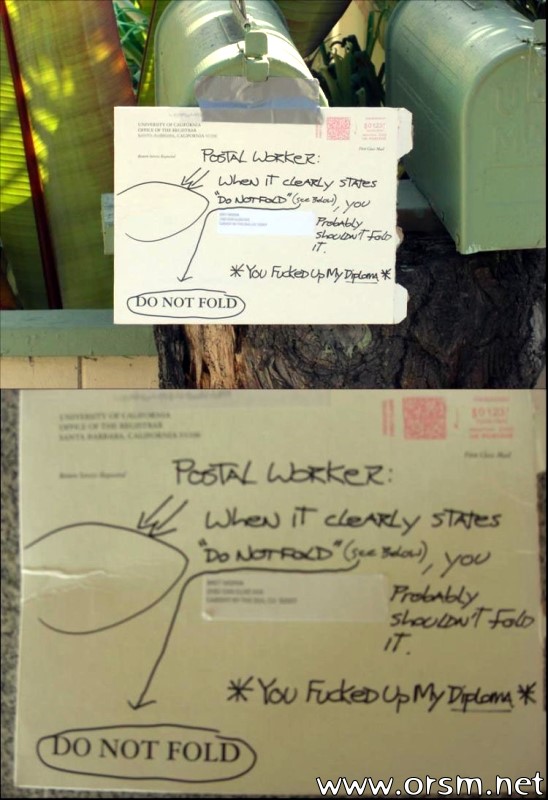 UNIVERSITY OF CALIFORNIA
OFFICE OF THE REGISTRAR
SANTA BARBARA, CALIFORNIA
Return Service Requested
First Class Mail
POSTAL WORKER:
WHEN IT CLEARLY STATES
"DO NOT FOLD" (SEE BELOW), YOU
PROBABLY
SHOULDN'T FOLD
IT.
*YOU FUCKED UP MY DIPLOMA*
DO NOT FOLD
UNIVERSITY OF CALIFORNIA
OFFICE OF THE REGISTRAR
SANTA BARBARA, CALIFORNIA
Return Service Requested
First Class Mail
POSTAL WORKER:
WHEN IT CLEARLY STATES
"DO NOT FOLD" (SEE BELOW), YOU
PROBABLY
SHOULDN'T FOLD
IT.
*YOU FUCKED UP MY DIPLOMA*
DO NOT FOLD
www.orsm.net